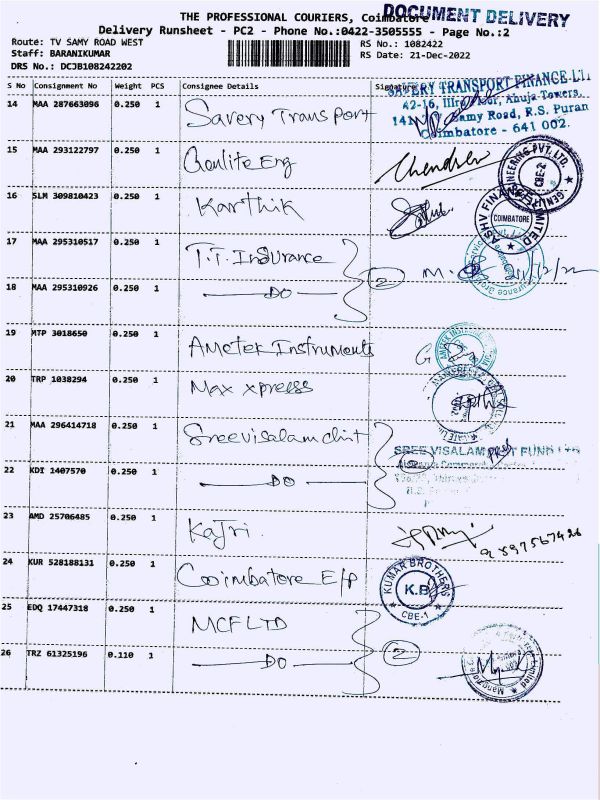 THE PROFESSIONAL COURIERS, Coimbatore
DOCUMENT DELIVERY
Delivery Runsheet - PC2 - Phone No.:0422-3505555 - Page No.:2
Route: TV SAMY ROAD WEST
RS No.: 1082422
Staff: BARANIKUMAR
RS Date: 21-Dec-2022
DRS No.: DCJB108242202
S No Consignment No Weight PCS Consignee Details Signature
14 MAA 287663096 0.250 1 Savery Transport
SAVERY TRANSPORT FINANCE
A2-16, IIIrd Floor, Ahuja Towers,
Samy Road, R.S. Puran
Coimbatore - 641 002.
15 MAA 293122797 0.250 1 Genlite Eng
CBE-2
16 SLM 309810423 0.250 1 Karthik
ASHV FINANCE LIMITED
COIMBATORE
17 MAA 295310517 0.250 1 T.T. Insurance
2
21/12/22
18 MAA 295310926 0.250 1 DO
19 MTP 3018650 0.250 1 Ametek Instruments
20 TRP 1038294 0.250 1 Max xpress
21 MAA 296414718 0.250 1 Sreevisalam chit
SREE VISALAM CHIT FUND LTD
22 KDI 1407570 0.250 1 DO
23 AMD 25706485 0.250 1 Kajri.
24 KUR 528188131 0.250 1 Coimbatore E/P
KUMAR BROTHERS
K.B
CBE-1
25 EDQ 17447318 0.250 1 MCF LTD
2
26 TRZ 61325196 0.110 1 DO